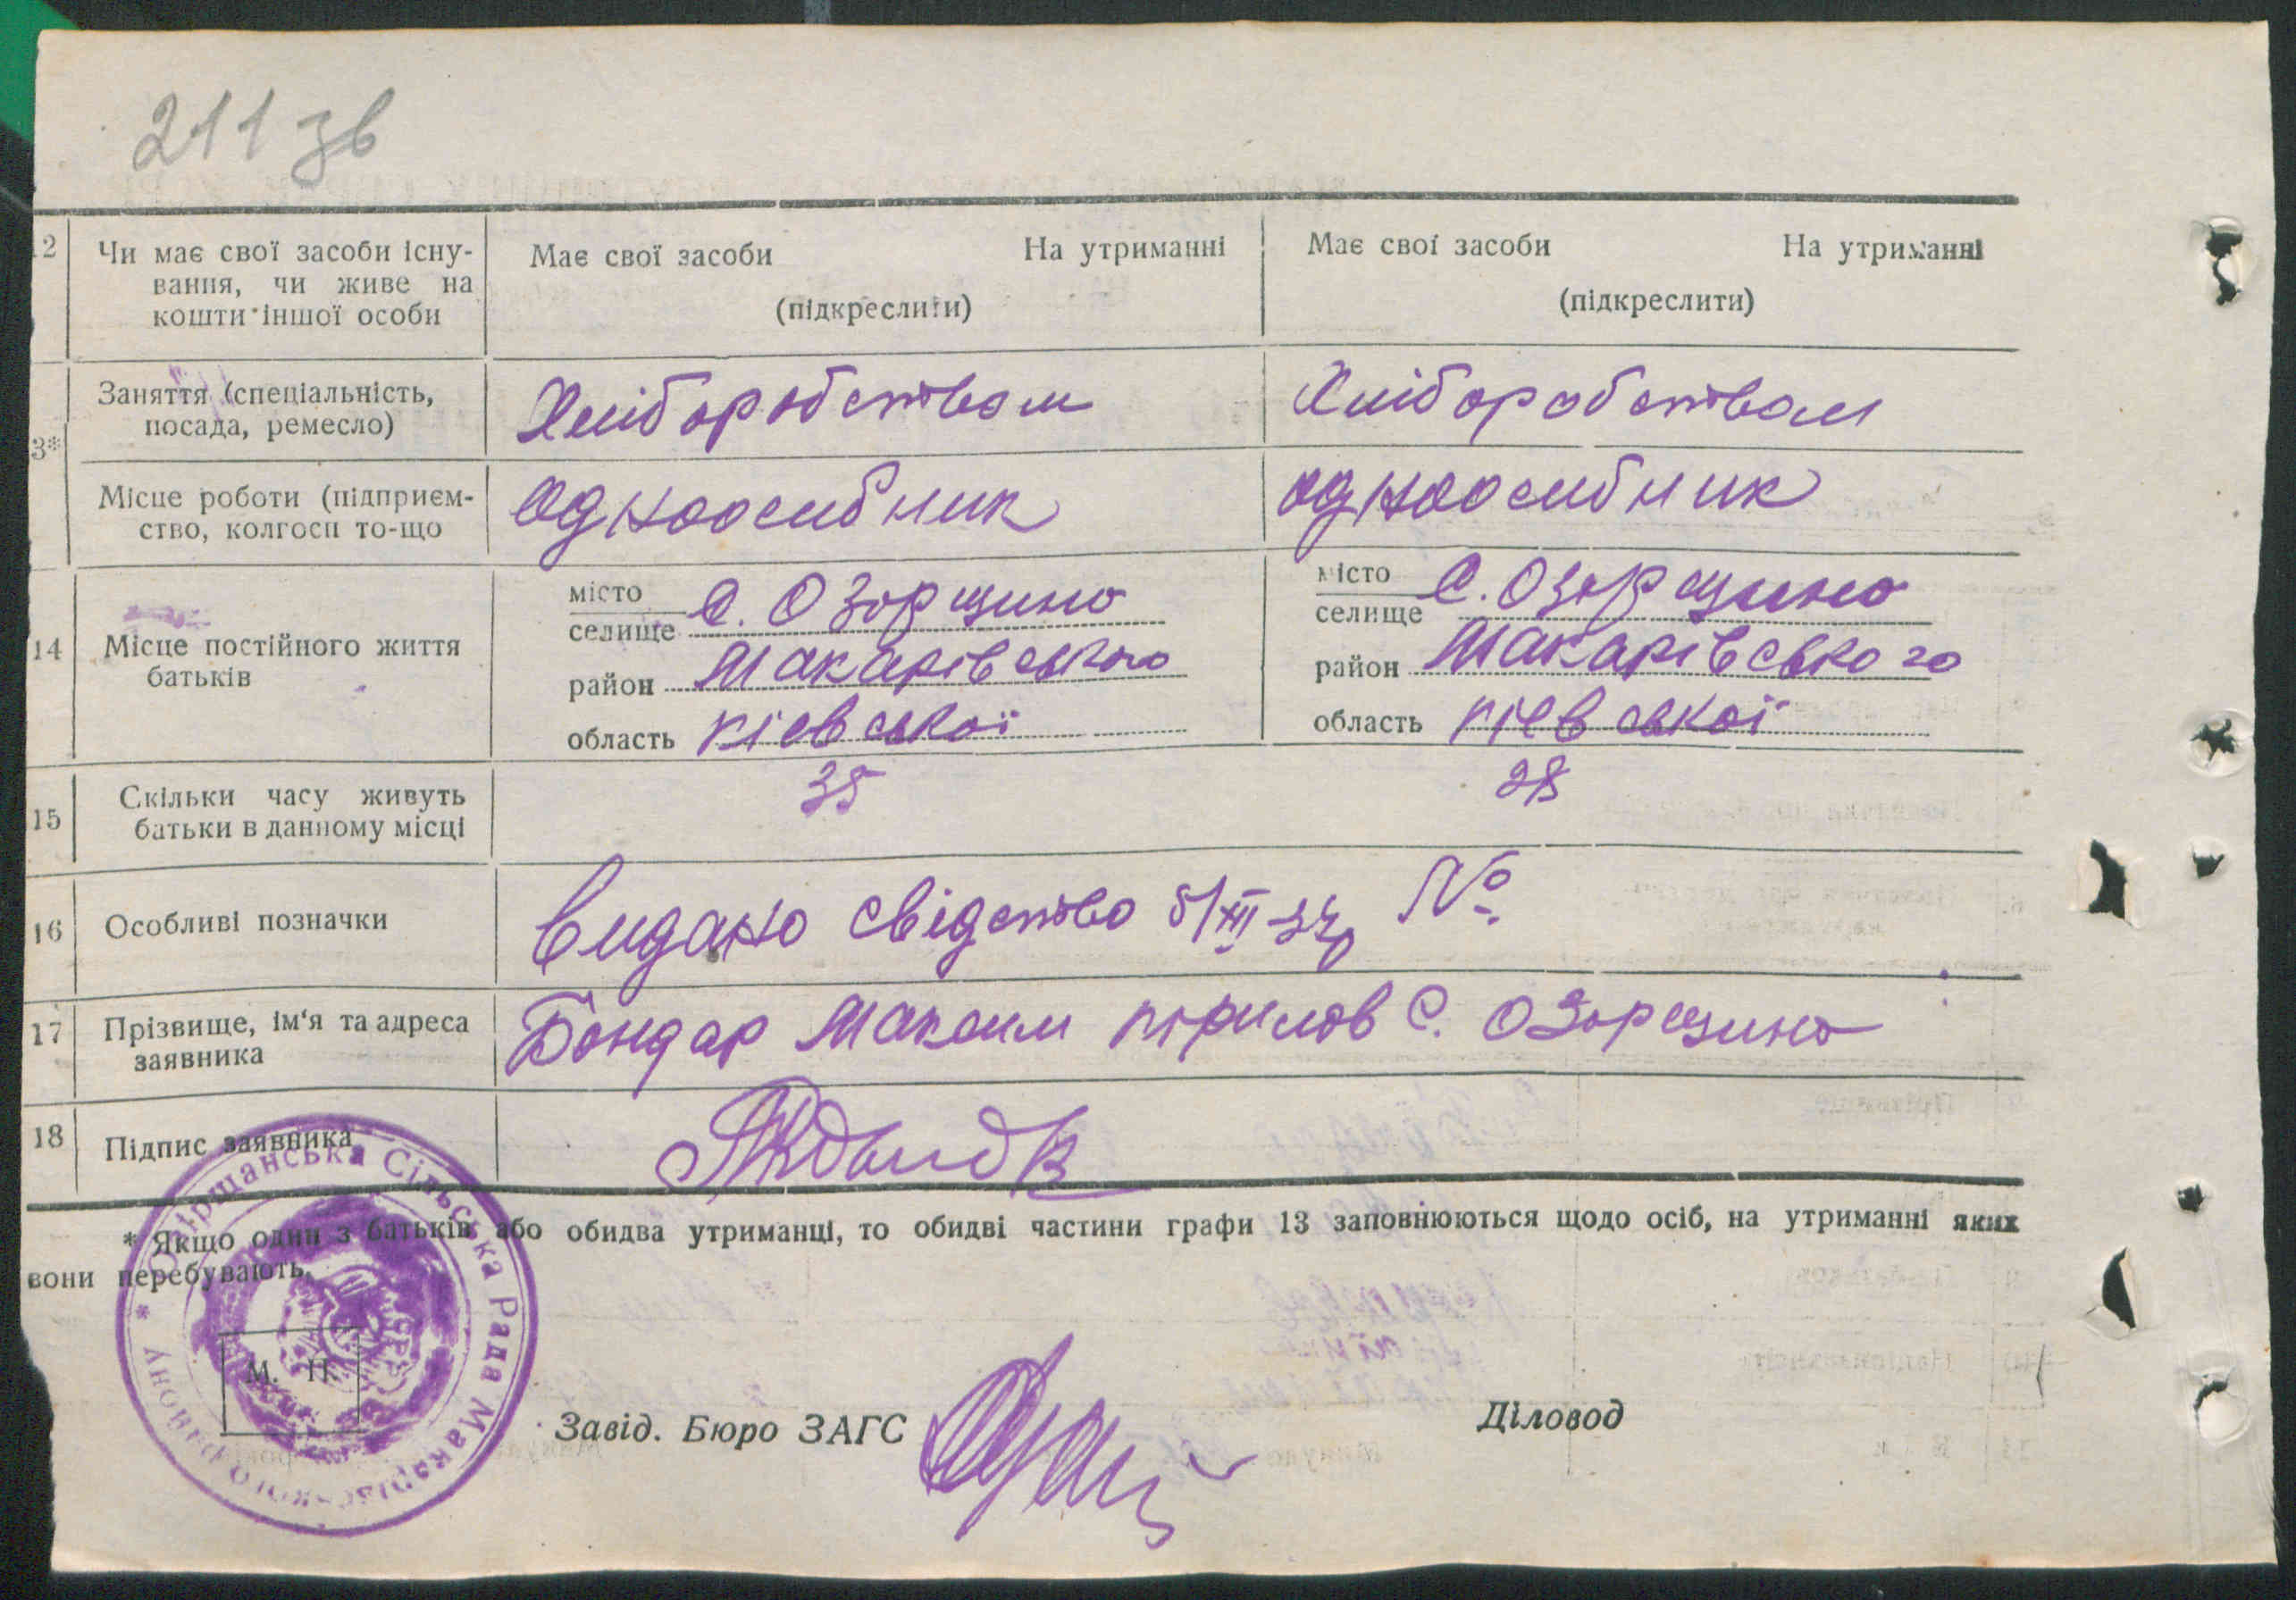 211 зв
12 Чи має свої засоби існу-
вання, чи живе на
кошти іншої особи
Має свої засоби На утриманні
(підкреслити)
Має свої засоби На утриманні
(підкреслити)
3*
Заняття (спеціальність,
посада, ремесло)
Хліборобством
Хліборобством
Місце роботи (підприєм-
ство, колгосп то-що
одноосибник
одноосибник
14 Місце постійного життя
батьків
місто
селище С. Озорщино
район Макарівського
область Кіевської
місто
селище С. Озорщино
район Макарівського
область Кіевської
15 Скільки часу живуть
батьки в данному місці
35
28
16 Особливі позначки
Видано свідство 5/XII №
17 Прізвище, ім'я та адреса
заявника
Бондар Максим С. Озорщино
18 Підпис заявника
* Якщо один з батьків або обидва утриманці, то обидві частини графи 13 заповнюються щодо осіб, на утриманні яких
вони перебувають.
Сільська Рада Макарівського району
М. П.
Завід. Бюро ЗАГС
Діловод